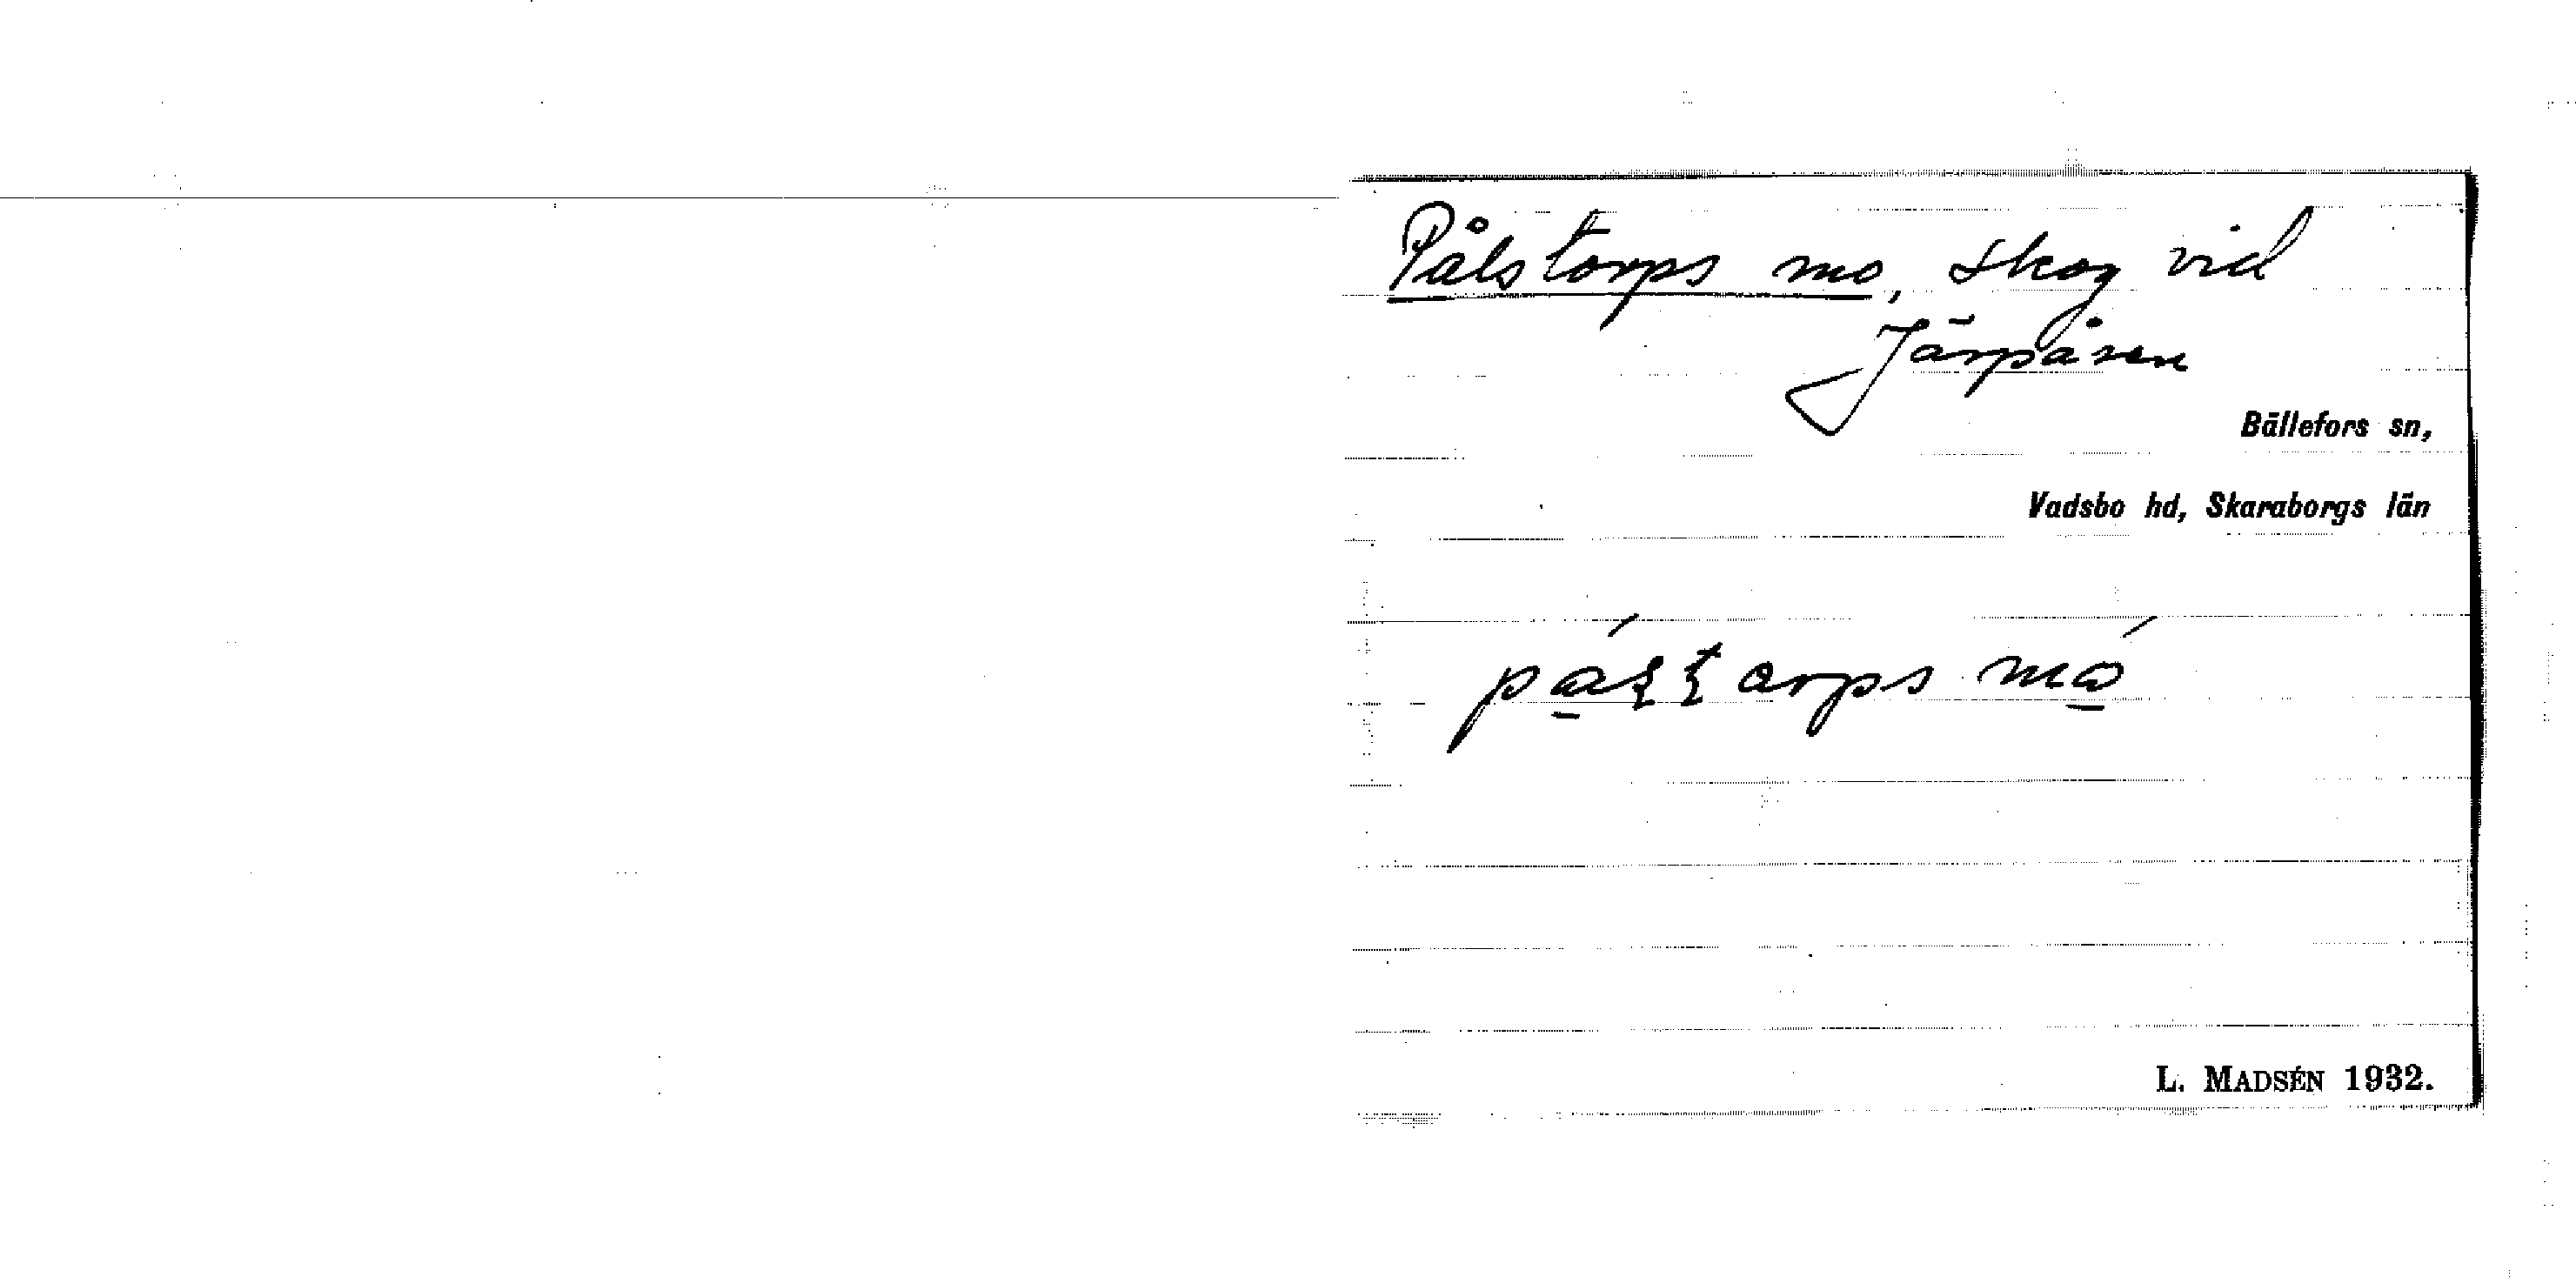 Pålstorps mo, skog vid
Järpåsen
Bällefors sn,
Vadsbo hd, Skaraborgs län
L. MADSÉN 1932.